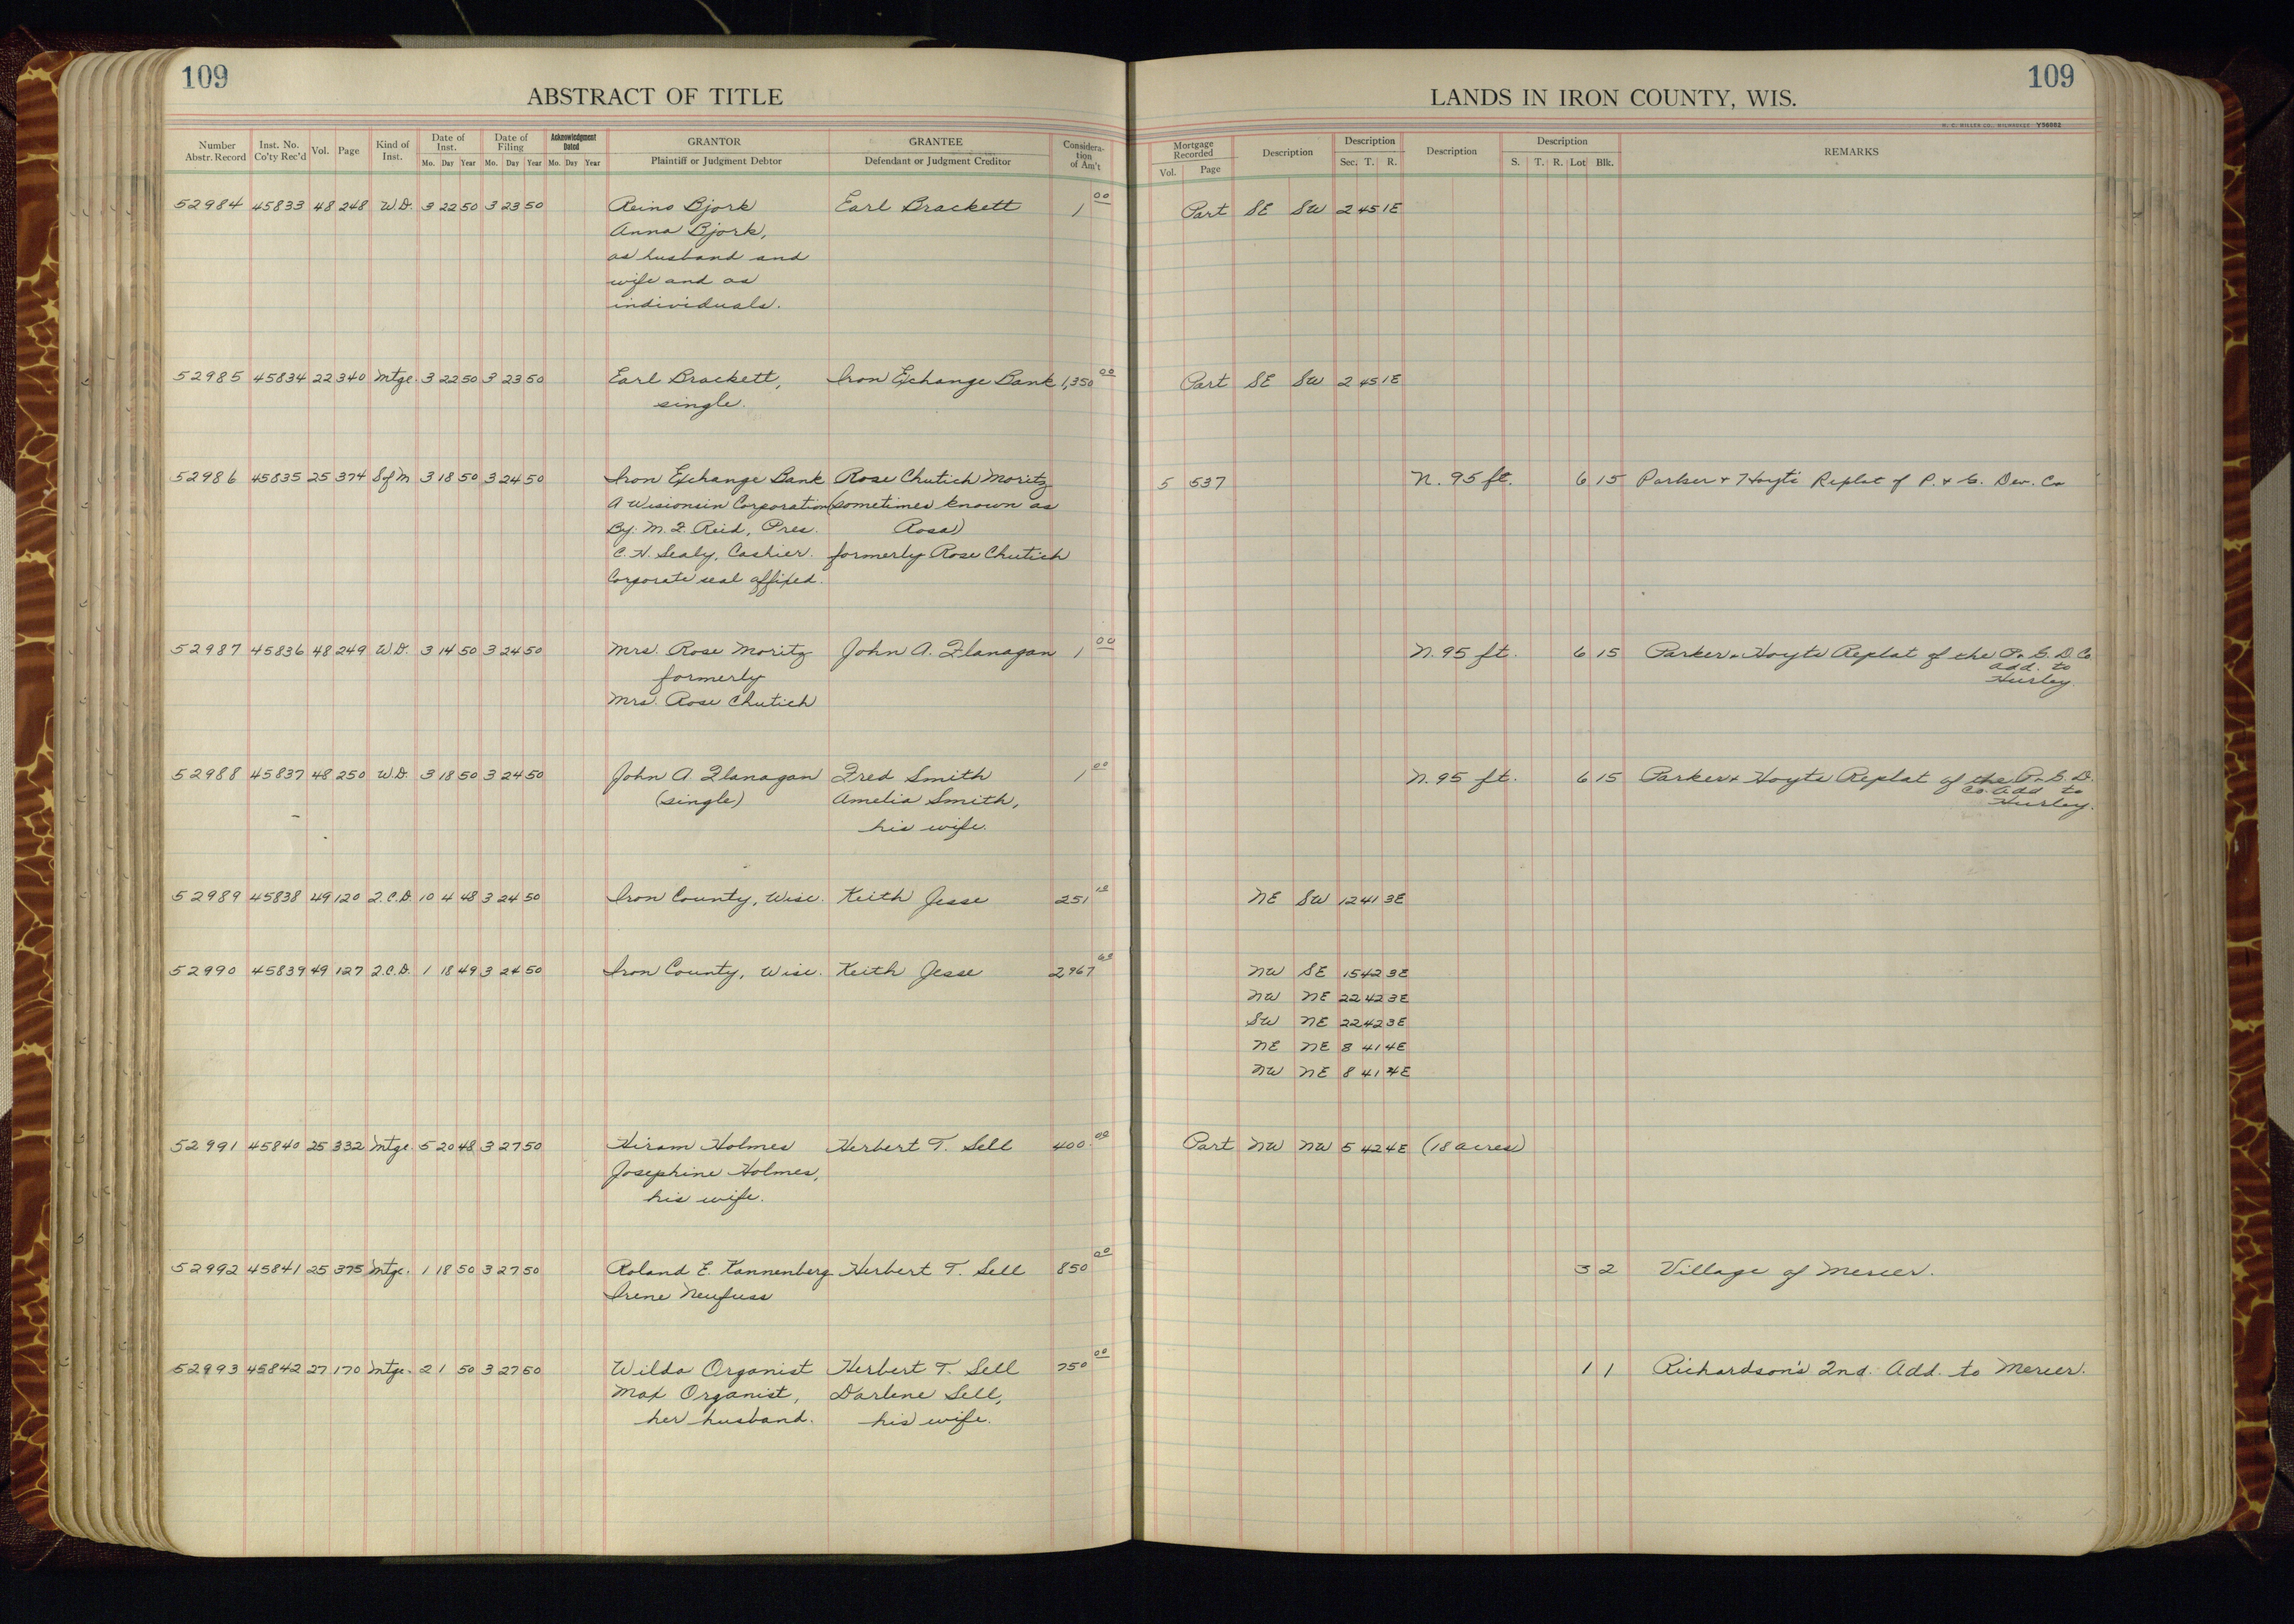 109
ABSTRACT OF TITLE
Number Abstr. Record | Inst. No. Co'ty Rec'd | Vol. | Page | Kind of Inst. | Date of Inst. Mo. Day Year | Date of Filing Mo. Day Year | Acknowledgment Dated Mo. Day Year | GRANTOR Plaintiff or Judgment Debtor | GRANTEE Defendant or Judgment Creditor | Considera-tion of Am't
52984 45833 48 248 W.D. 3 22 50 3 23 50 Reino Bjork Earl Brackett 1 00
Anna Bjork,
as husband and
wife and as
individuals.
52985 45834 22 340 Mtge. 3 22 50 3 23 50 Earl Brackett, Iron Exchange Bank 1,350 00
single.
52986 45835 25 374 S of M 3 18 50 3 24 50 Iron Exchange Bank Rose Chutich Moritz
A Wisionsin Corporation (sometimes known as
By: M. J. Reid, Pres. Rosa)
C. H. Sealy, Cashier. formerly Rose Chutich
Corporate seal affixed.
52987 45836 48 249 W.D. 3 14 50 3 24 50 Mrs. Rose Moritz John A. Flanagan 1 00
formerly
Mrs. Rose Chutich
52988 45837 48 250 W.D. 3 18 50 3 24 50 John A. Flanagan Fred Smith 1 00
(single) Amelia Smith,
his wife.
52989 45838 49 120 Q.C.D. 10 4 48 3 24 50 Iron County, Wisc. Keith Jesse 251
52990 45839 49 127 Q.C.D. 1 18 49 3 24 50 Iron County, Wisc. Keith Jesse 2967
52991 45840 25 332 Mtge. 5 20 48 3 27 50 Hiram Holmes Herbert T. Sell 400 00
Josephine Holmes,
his wife.
52992 45841 25 375 Mtge. 1 18 50 3 27 50 Roland E. Kannenberg Herbert T. Sell 850 00
Irene Neufuss
52993 45842 27 170 Mtge. 2 1 50 3 27 50 Wilda Organist Herbert T. Sell 750 00
Max Organist, Darlene Sell,
her husband. his wife.
109
LANDS IN IRON COUNTY, WIS.
H. C. MILLER CO., MILWAUKEE Y56002
Mortgage Recorded Vol. Page | Description | Description Sec. T. R. | Description | Description S. T. R. Lot Blk. | REMARKS
Part SE SW 2 45 1E
Part SE SW 2 45 1E
5 537 N. 95 ft. 6 15 Parker & Hoyts Replat of P. & G. Dev. Co
N. 95 ft. 6 15 Parker & Hoyts Replat of the P. & G. D. Co.
Add. to
Hurley.
N. 95 ft. 6 15 Parker & Hoyts Replat of the P. & G. D.
Co. Add to
Hurley.
NE SW 12 41 3E
NW SE 15 42 3E
NW NE 22 42 3E
SW NE 22 42 3E
NE NE 8 41 4E
NW NE 8 41 4E
Part NW NW 5 42 4E (18 acres)
3 2 Village of Mercer.
1 1 Richardson's 2nd. Add. to Mercer.